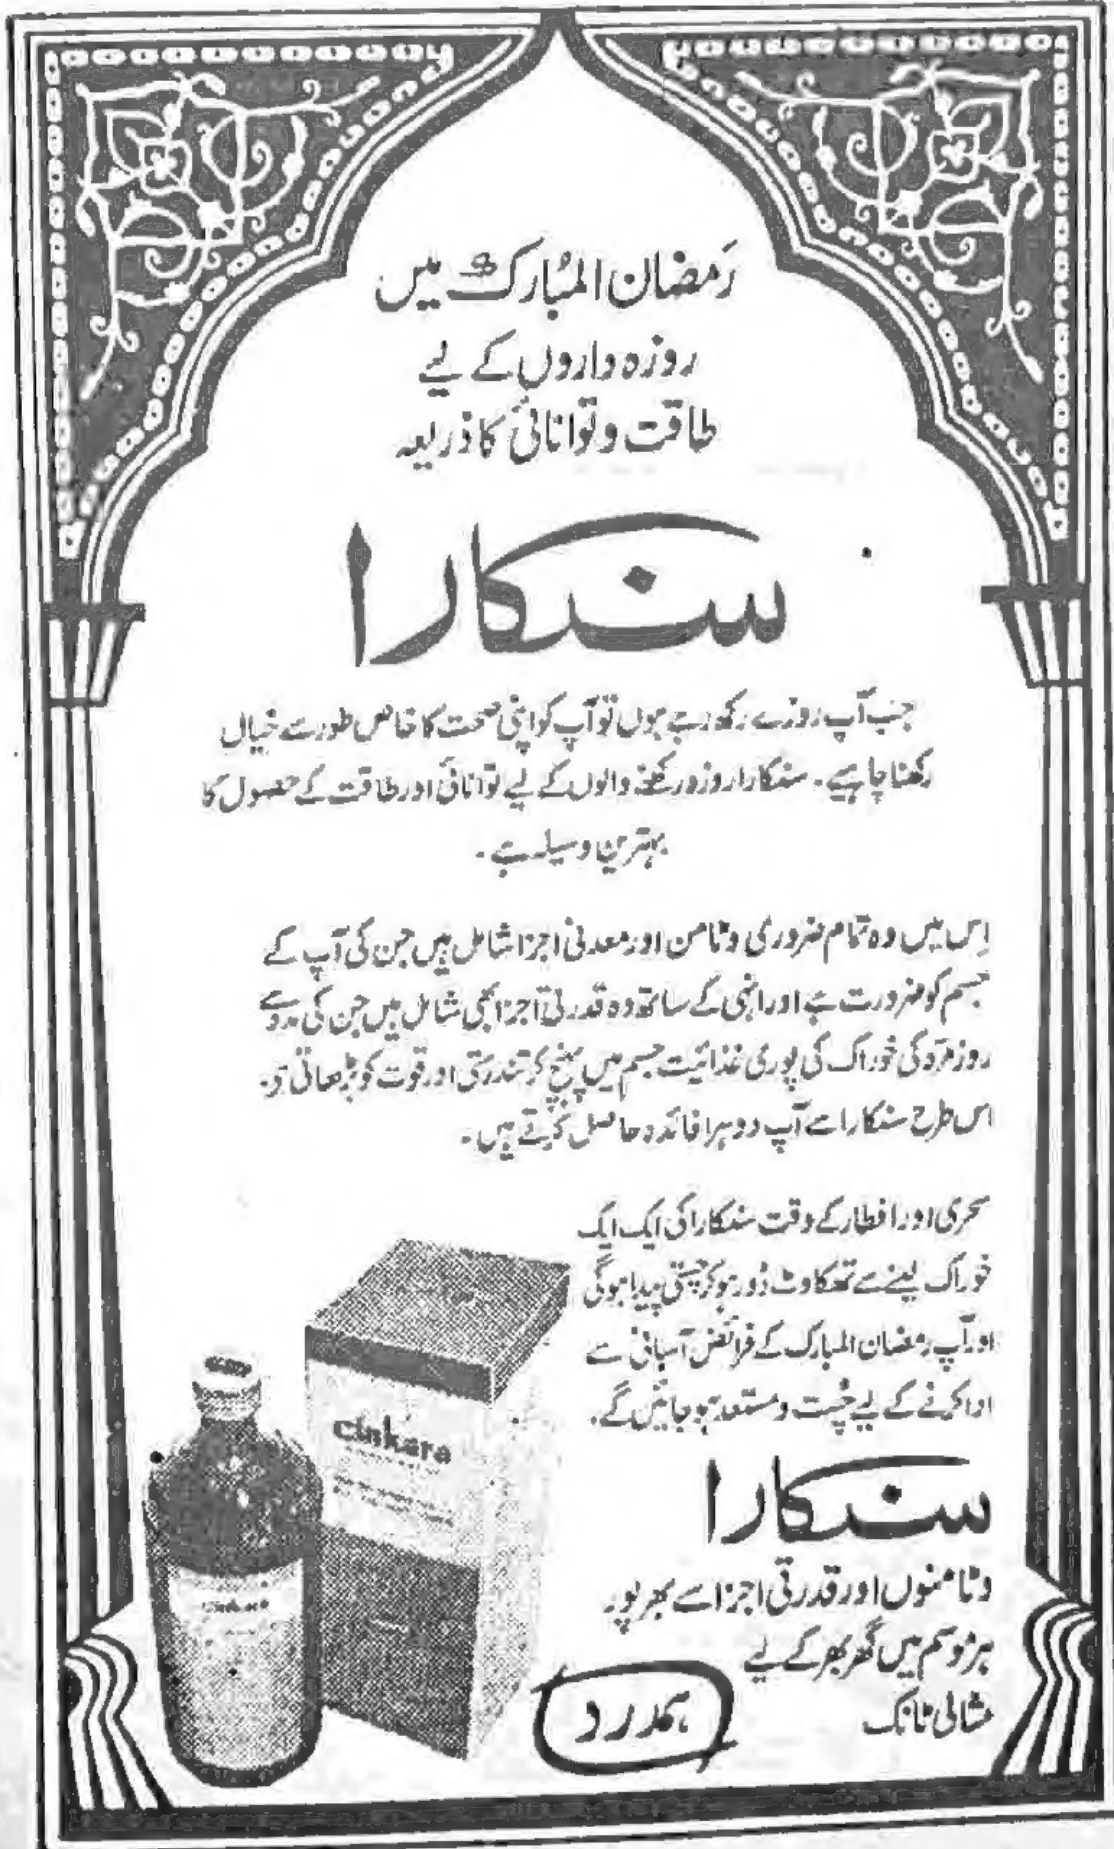 رَمضان المُبارک میں
روزہ داروں کے لیے
طاقت و توانائی کا ذریعہ
سنکارا
جب آپ روزے رکھ رہے ہوں تو آپ کو اپنی صحت کا خاص طور سے خیال
رکھنا چاہیے۔ سنکارا روزہ رکھنے والوں کے لیے توانائی اور طاقت کے حصول کا
بہترین وسیلہ ہے۔
اِس میں وہ تمام ضروری وٹامن اور معدنی اجزا شامل ہیں جن کی آپ کے
جسم کو ضرورت ہے اور انہی کے ساتھ وہ قدرتی اجزا بھی شامل ہیں جن کی مدد سے
روزمرّہ کی خوراک کی پوری غذائیت جسم میں پہنچ کر تندرستی اور قوت کو بڑھاتی ہے۔
اس طرح سنکارا سے آپ دوہرا فائدہ حاصل کرتے ہیں۔
سحری اور افطار کے وقت سنکارا کی ایک ایک
خوراک لینے سے تھکاوٹ دُور ہو کر چستی پیدا ہوگی
اور آپ رمضان المبارک کے فرائض آسانی سے
ادا کرنے کے لیے چُست و مستعد ہو جائیں گے۔
cinkara
cinkara
سنکارا
وٹامنوں اور قدرتی اجزا سے بھرپور
ہر موسم میں گھر بھر کے لیے
مثالی ٹانک
ہمدرد